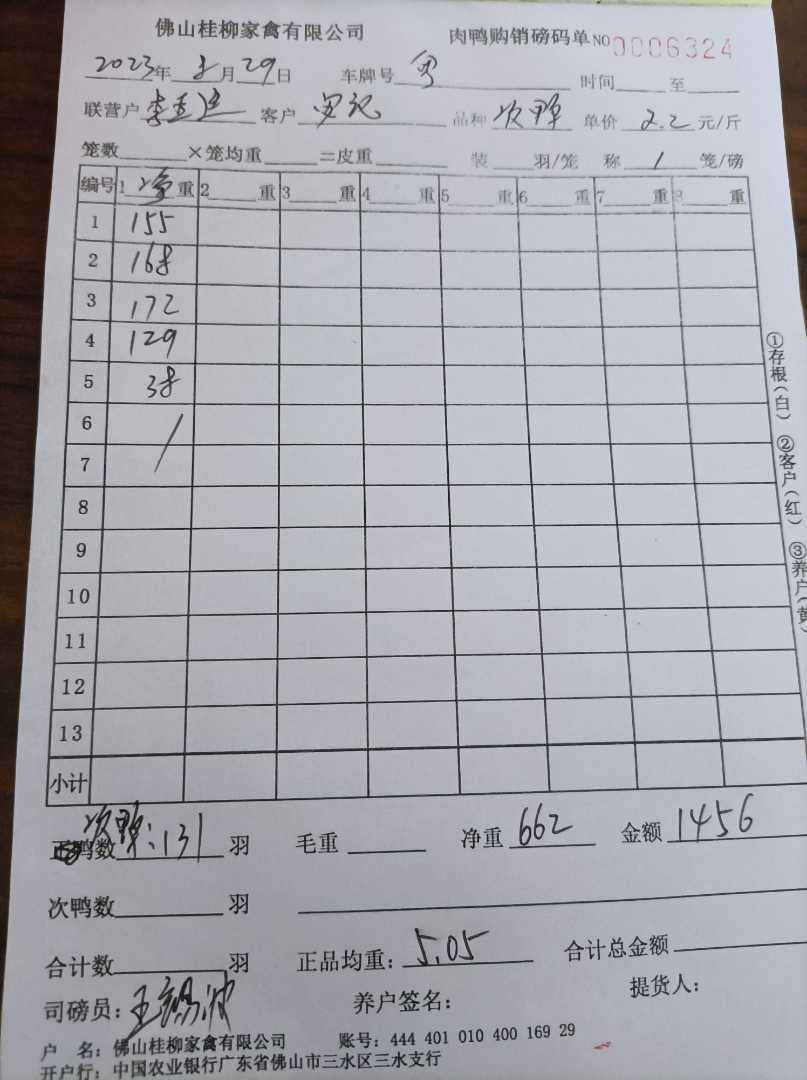 佛山桂柳家禽有限公司 肉鸭购销磅码单 NO 0006324
2023年 月29日 车牌号 时间 至
联营户 李 客户 记 品种 次鸭 单价 2.2 元/斤
笼数 ×笼均重 =皮重 装 羽/笼 称 1 笼/磅
编号 1 净 重 2 重 3 重 4 重 5 重 6 重 7 重 8 重
1 155
2 168
3 172
4 129
5 38
6 /
7
8
9
10
11
12
13
小计
①存根(白) ②客户(红) ③养户(黄
鸭数 次鸭:131 羽 毛重 净重 662 金额 1456
次鸭数 羽
合计数 羽 正品均重: 5.05 合计总金额
司磅员: 王锡波 养户签名: 提货人:
户 名: 佛山桂柳家禽有限公司 账号: 444 401 010 400 169 29
开户行: 中国农业银行广东省佛山市三水区三水支行